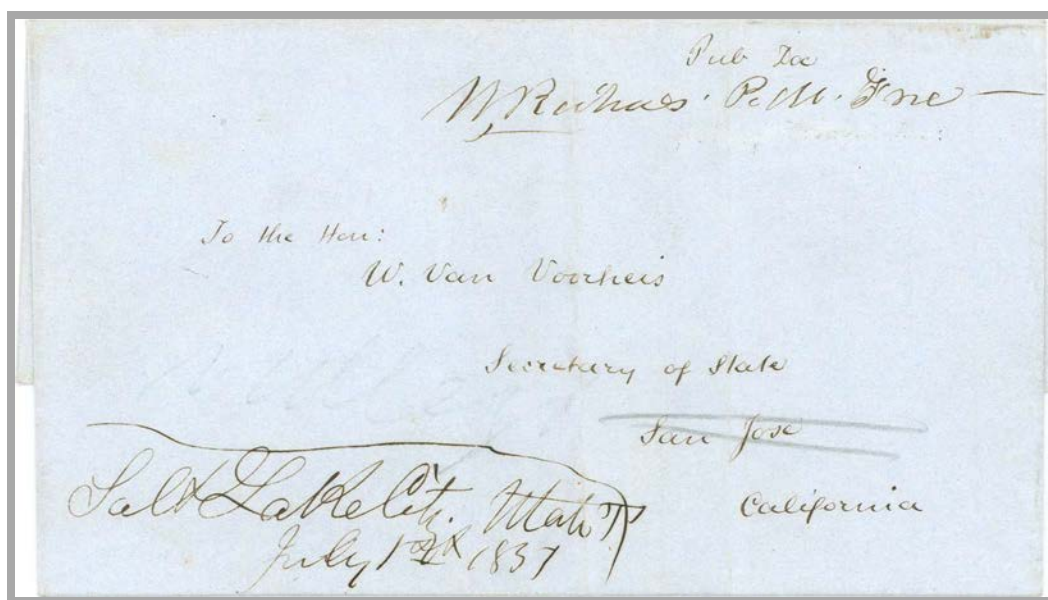 Pub Doc
W. Richards. P.M. Free
To the Hon:
W. Van Voorheis
Secretary of State
San Jose
California
Salt Lake City. Utah T
July 1851